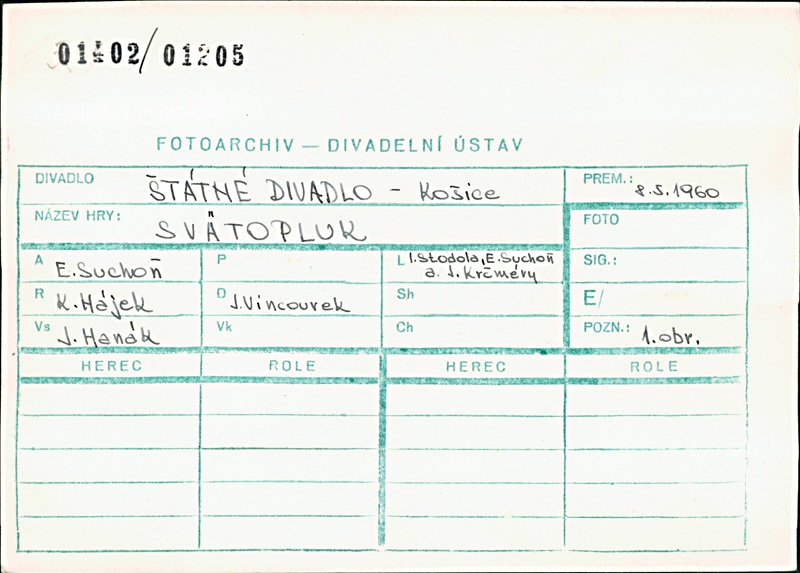 01102/01205
FOTOARCHIV — DIVADELNÍ ÚSTAV
DIVADLO ŠTÁTNÉ DIVADLO - Košice
PREM.: 8.5.1960
NÁZEV HRY: SVÄTOPLUK
FOTO
A E. Suchoň
P
L I. Stodola, E. Suchoň
a. J. Krčméry
SIG.:
R K. Hájek
D J. Vincourek
Sh
E/
Vs J. Hanák
Vk
Ch
POZN.: 1. obr.
HEREC ROLE HEREC ROLE